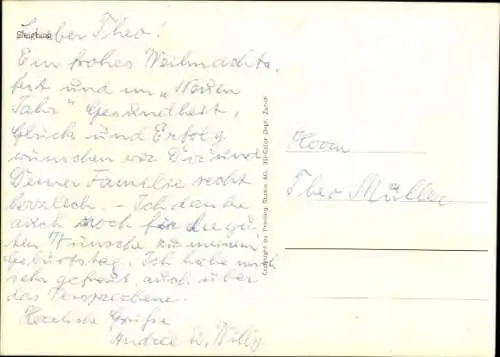 Lieber Theo!
Ein frohes Weihnachts-
fest und im „Neuen
Jahr" Gesundheit,
Glück und Erfolg
wünschen wir Dir und
Deiner Familie recht
herzlich. - Ich danke
auch noch für die gu-
ten Wünsche zu meinem
Geburtstag. Ich habe mich
sehr gefreut, auch über
das Versprechene.
Herzliche Grüße
Andree u. Willy
Herrn
Theo Müller
Copyright by Printing Studio AG, 3D-Color Dept. Zürich